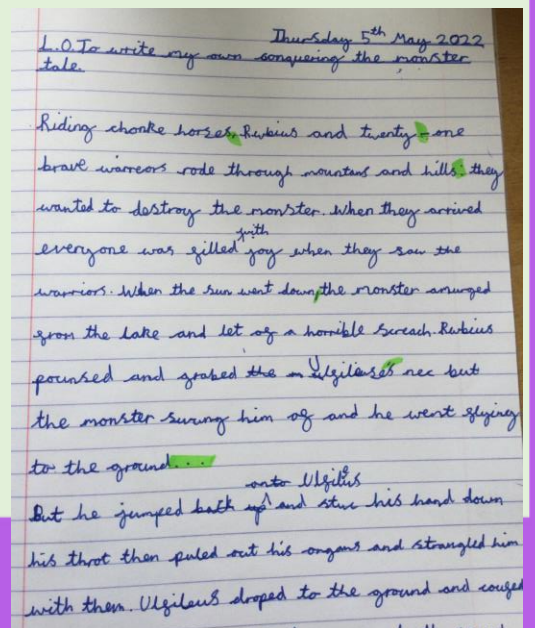 Thursday 5th May 2022
L.O. To write my own conquering the monster
tale.
Riding chonke horses, Rubius and twenty-one
brave warreors rode through mountans and hills: they
wanted to destroy the monster. When they arrived
everyone was filled with joy when they saw the
warriors. When the sun went down, the monster amurged
from the lake and let of a horrible screach. Rubius
pounsed and grabed the Ulgileus's nec but
the monster swung him of and he went flying
to the ground....
But he jumped back up onto Ulgileus and stuc his hand down
his throt then puled out his organs and strangled him
with them. Ulgileus droped to the ground and couged